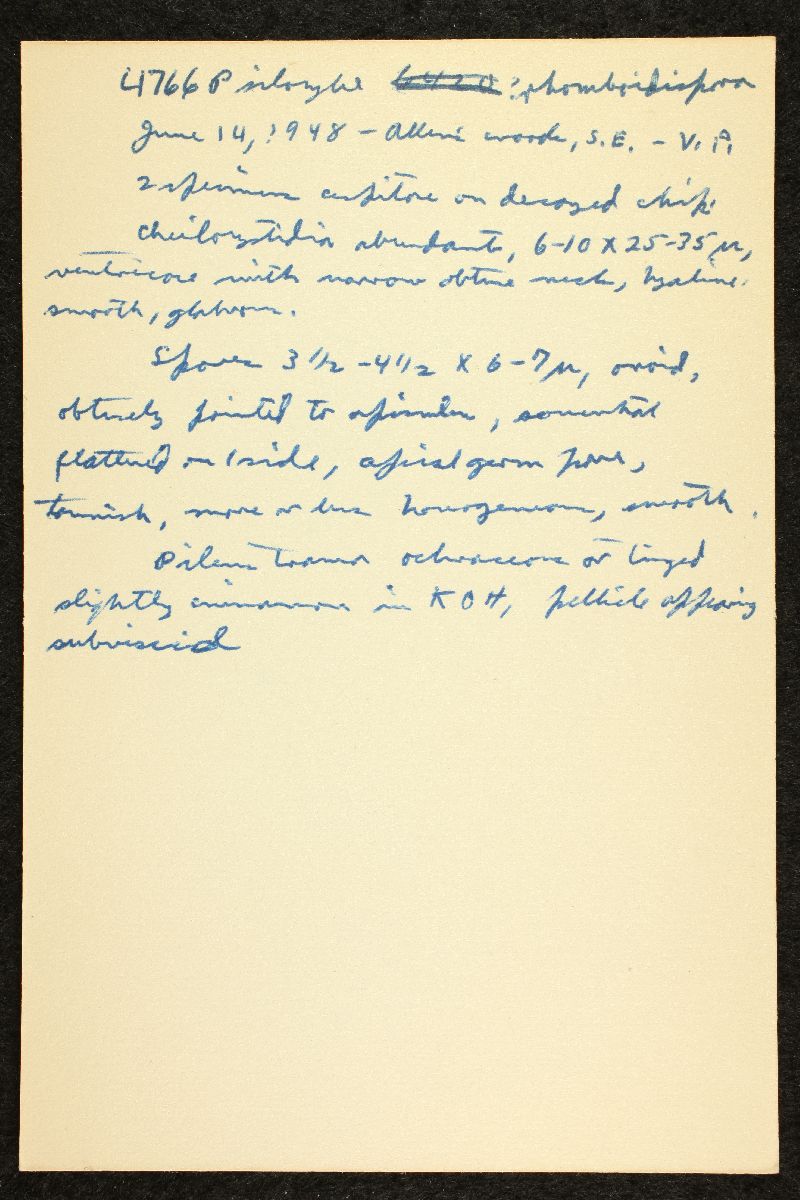 4766 Psilocybe ? rhomboidispora
June 14, 1948 - Allens woods, S.E. - V. P.
2 specimens cespitose on decayed chip.
Cheilocystidia abundant, 6-10 X 25-35 µ,
ventricose with narrow obtuse neck, hyaline,
smooth, glabrous.
Spores 3 1/2 - 4 1/2 X 6-7 µ, ovoid,
obtusely pointed to apiculus, somewhat
flattened on 1 side, apical germ pore,
tannish, more or less homogeneous, smooth.
Pileus trama ochraceous or tinged
slightly cinnamon in KOH, pellicle appearing
subviscid